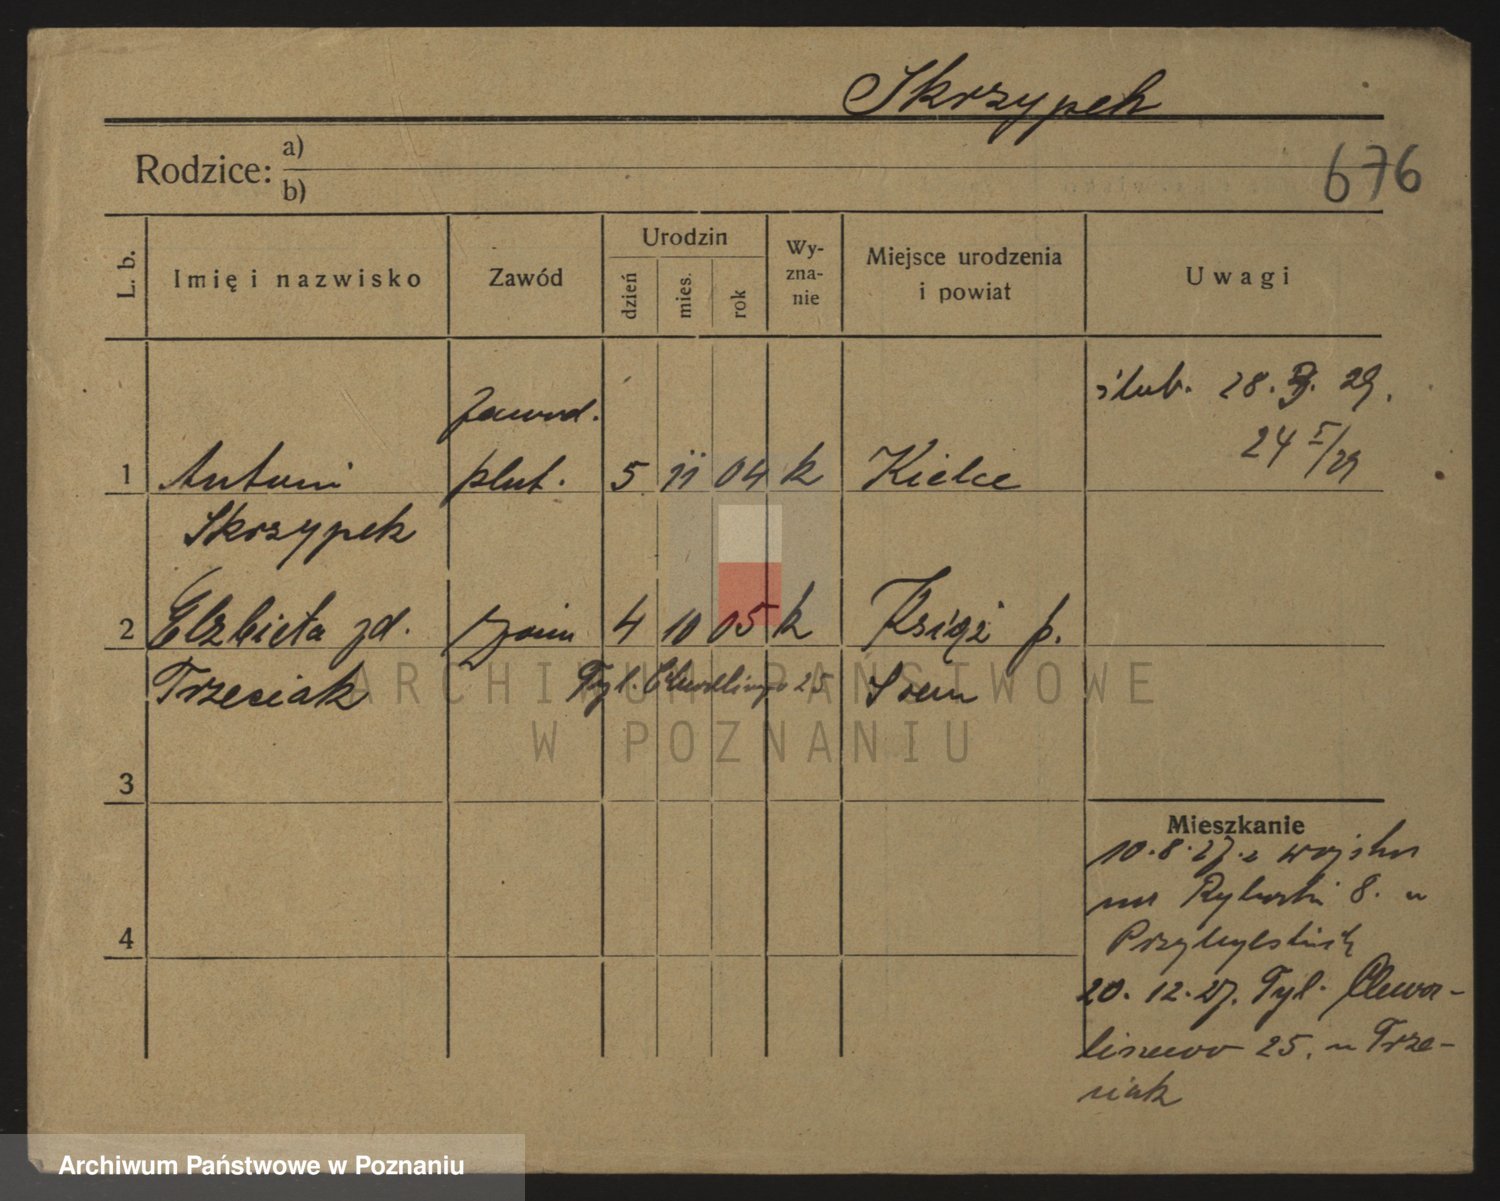 Skrzypek
Rodzice: a)
b)
676
L. b.
Imię i nazwisko
Zawód
Urodzin
dzień
mies.
rok
Wy-
zna-
nie
Miejsce urodzenia
i powiat
Uwagi
ślub. 28. 29.
24 I/29
zawod.
1 Antoni plut. 5 11 04 k Kielce
Skrzypek
2 Elżbieta zd. 4 10 05 k Książ p.
Trzeciak Tyl. 25 Śrem
ARCHIWUM PAŃSTWOWE
W POZNANIU
3
4
Mieszkanie
10.8.27. z wojska
na Rybaki 8. u
Przybylskich
20.12.27. Tyl. Chwa-
liszewo 25. u Trze-
ciak
Archiwum Państwowe w Poznaniu